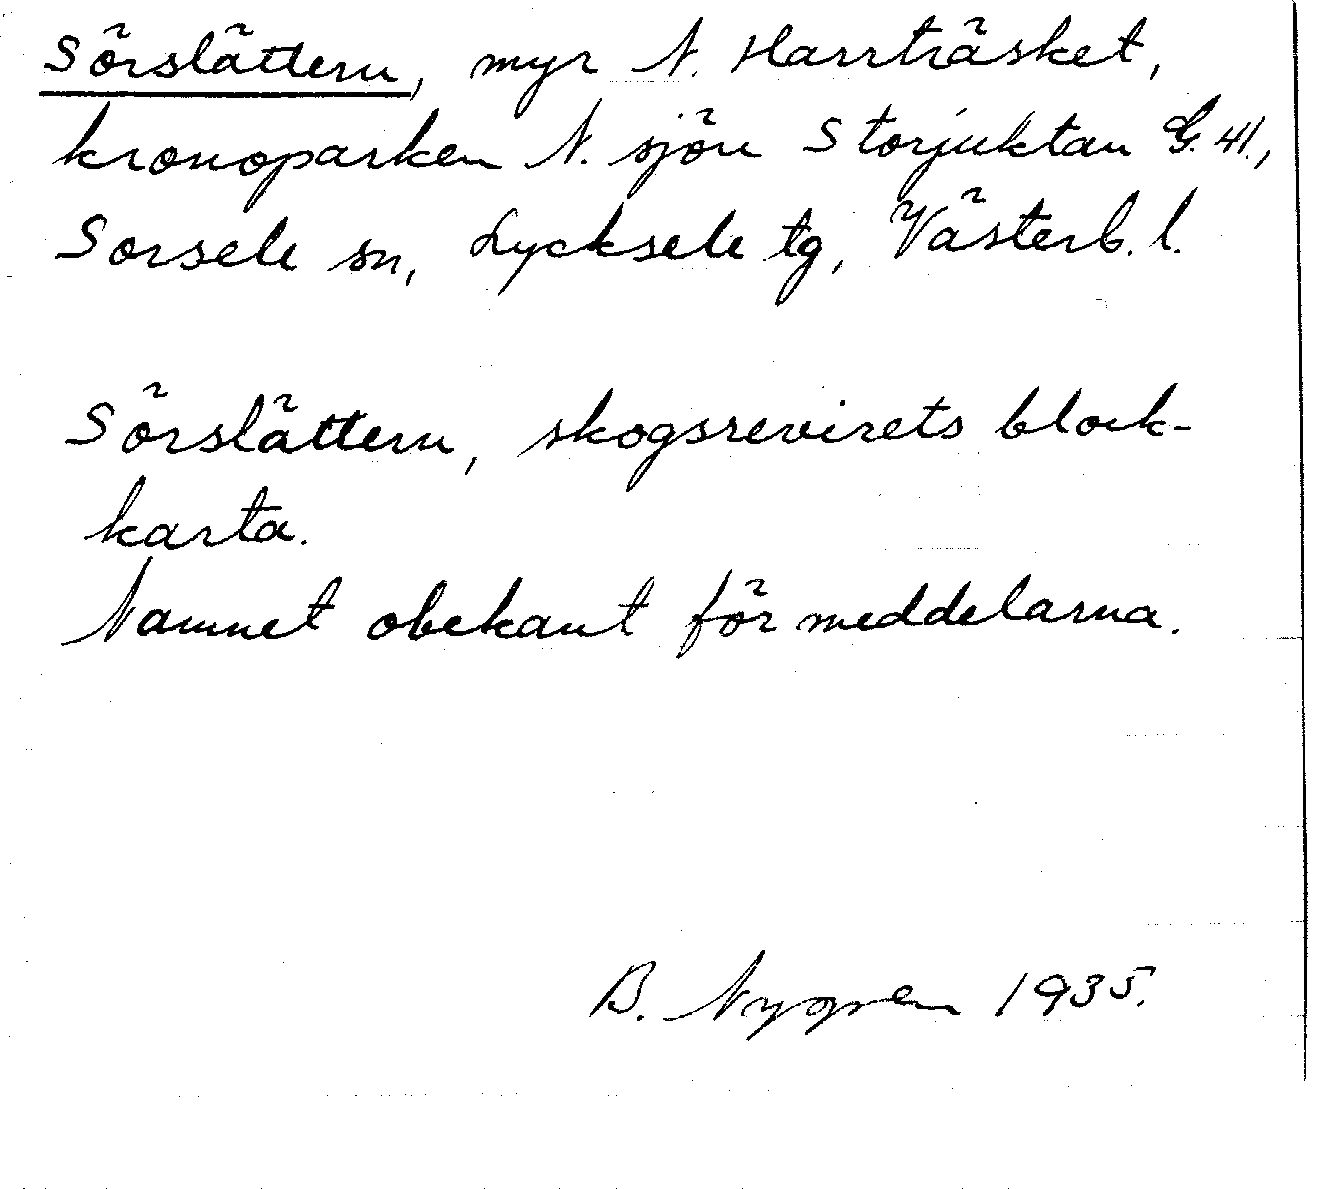 Sörslättern, myr N. Harrträsket,
kronoparken N. sjön Storjuktan G. 41.,
Sorsele sn, Lycksele tg, Västerb. l.
Sörslättern, skogsrevirets block-
karta.
Namnet obekant för meddelarna.
B. Nygren 1935.